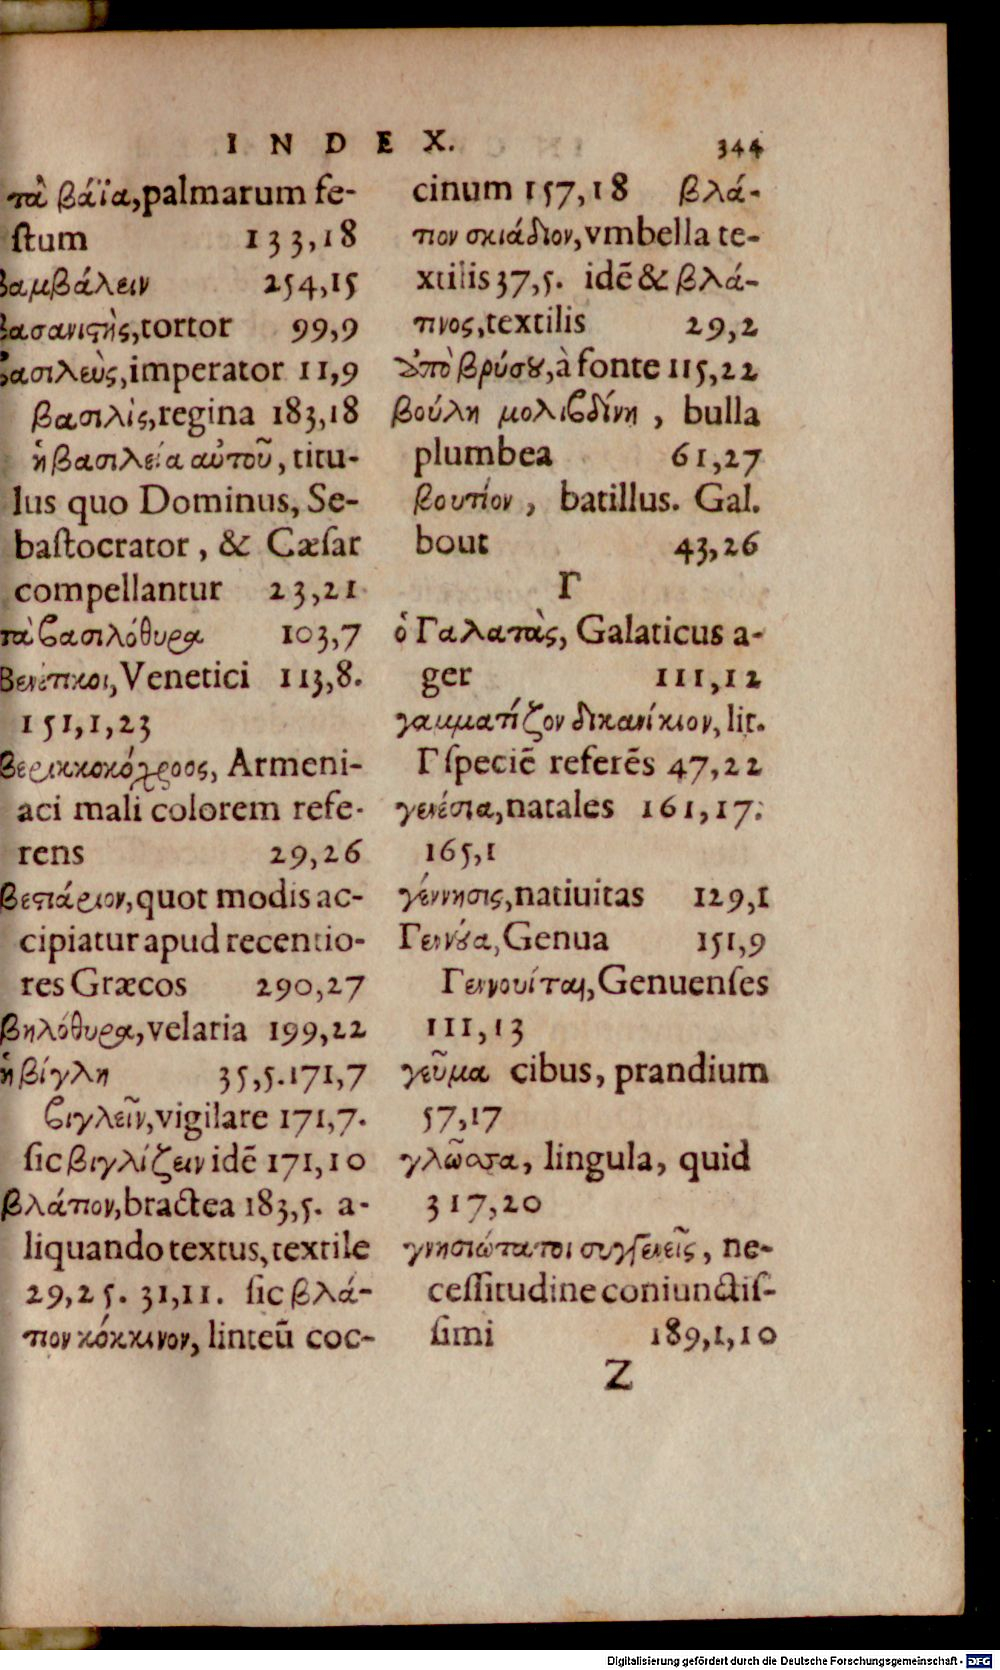 INDEX. 344
τὰ βάϊα, palmarum fe-
ſtum 133,18
βαμβάλειν 254,15
βασανιϛὴς, tortor 99,9
βασιλεὺς, imperator 11,9
βασιλὶς, regina 183,18
ἡ βασιλεία αὐτοῦ, titu-
lus quo Dominus, Se-
baſtocrator, & Cæſar
compellantur 23,21
τὰ βασιλόθυρα 103,7
Βενέτικοι, Venetici 113,8.
151,1,23
βερικκοκόχροος, Armeni-
aci mali colorem refe-
rens 29,26
βεϛιάριον, quot modis ac-
cipiatur apud recentio-
res Græcos 290,27
βηλόθυρα, velaria 199,22
ἡ βίγλη 35,5. 171,7
βιγλεῖν, vigilare 171,7.
ſic βιγλίζειν idẽ 171,10
βλάτιον, bractea 183,5. a-
liquando textus, textile
29,25. 31,11. ſic βλά-
τιον κόκκινον, linteũ coc-
cinum 157,18 βλά-
τιον σκιάδιον, vmbella te-
xtilis 37,5. idẽ & βλά-
τινος, textilis 29,2
ἀπὸ βρύσȣ, à fonte 115,22
βούλη μολιβδίνη, bulla
plumbea 61,27
βουτίον, batillus. Gal.
bout 43,26
Γ
ὁ Γαλατὰς, Galaticus a-
ger 111,12
γαμματίζον δικανίκιον, lit.
Γ ſpeciẽ referẽs 47,22
γενέσια, natales 161,17.
165,1
γέννησις, natiuitas 129,1
Γεννȣ́α, Genua 151,9
Γεννουίται, Genuenſes
111,13
γεῦμα cibus, prandium
57,17
γλῶσσα, lingula, quid
317,20
γνησιώτατοι συγγενεῖς, ne-
ceſſitudine coniunctiſ-
ſimi 189,1,10
Z
Digitalisierung gefördert durch die Deutsche Forschungsgemeinschaft - DFG